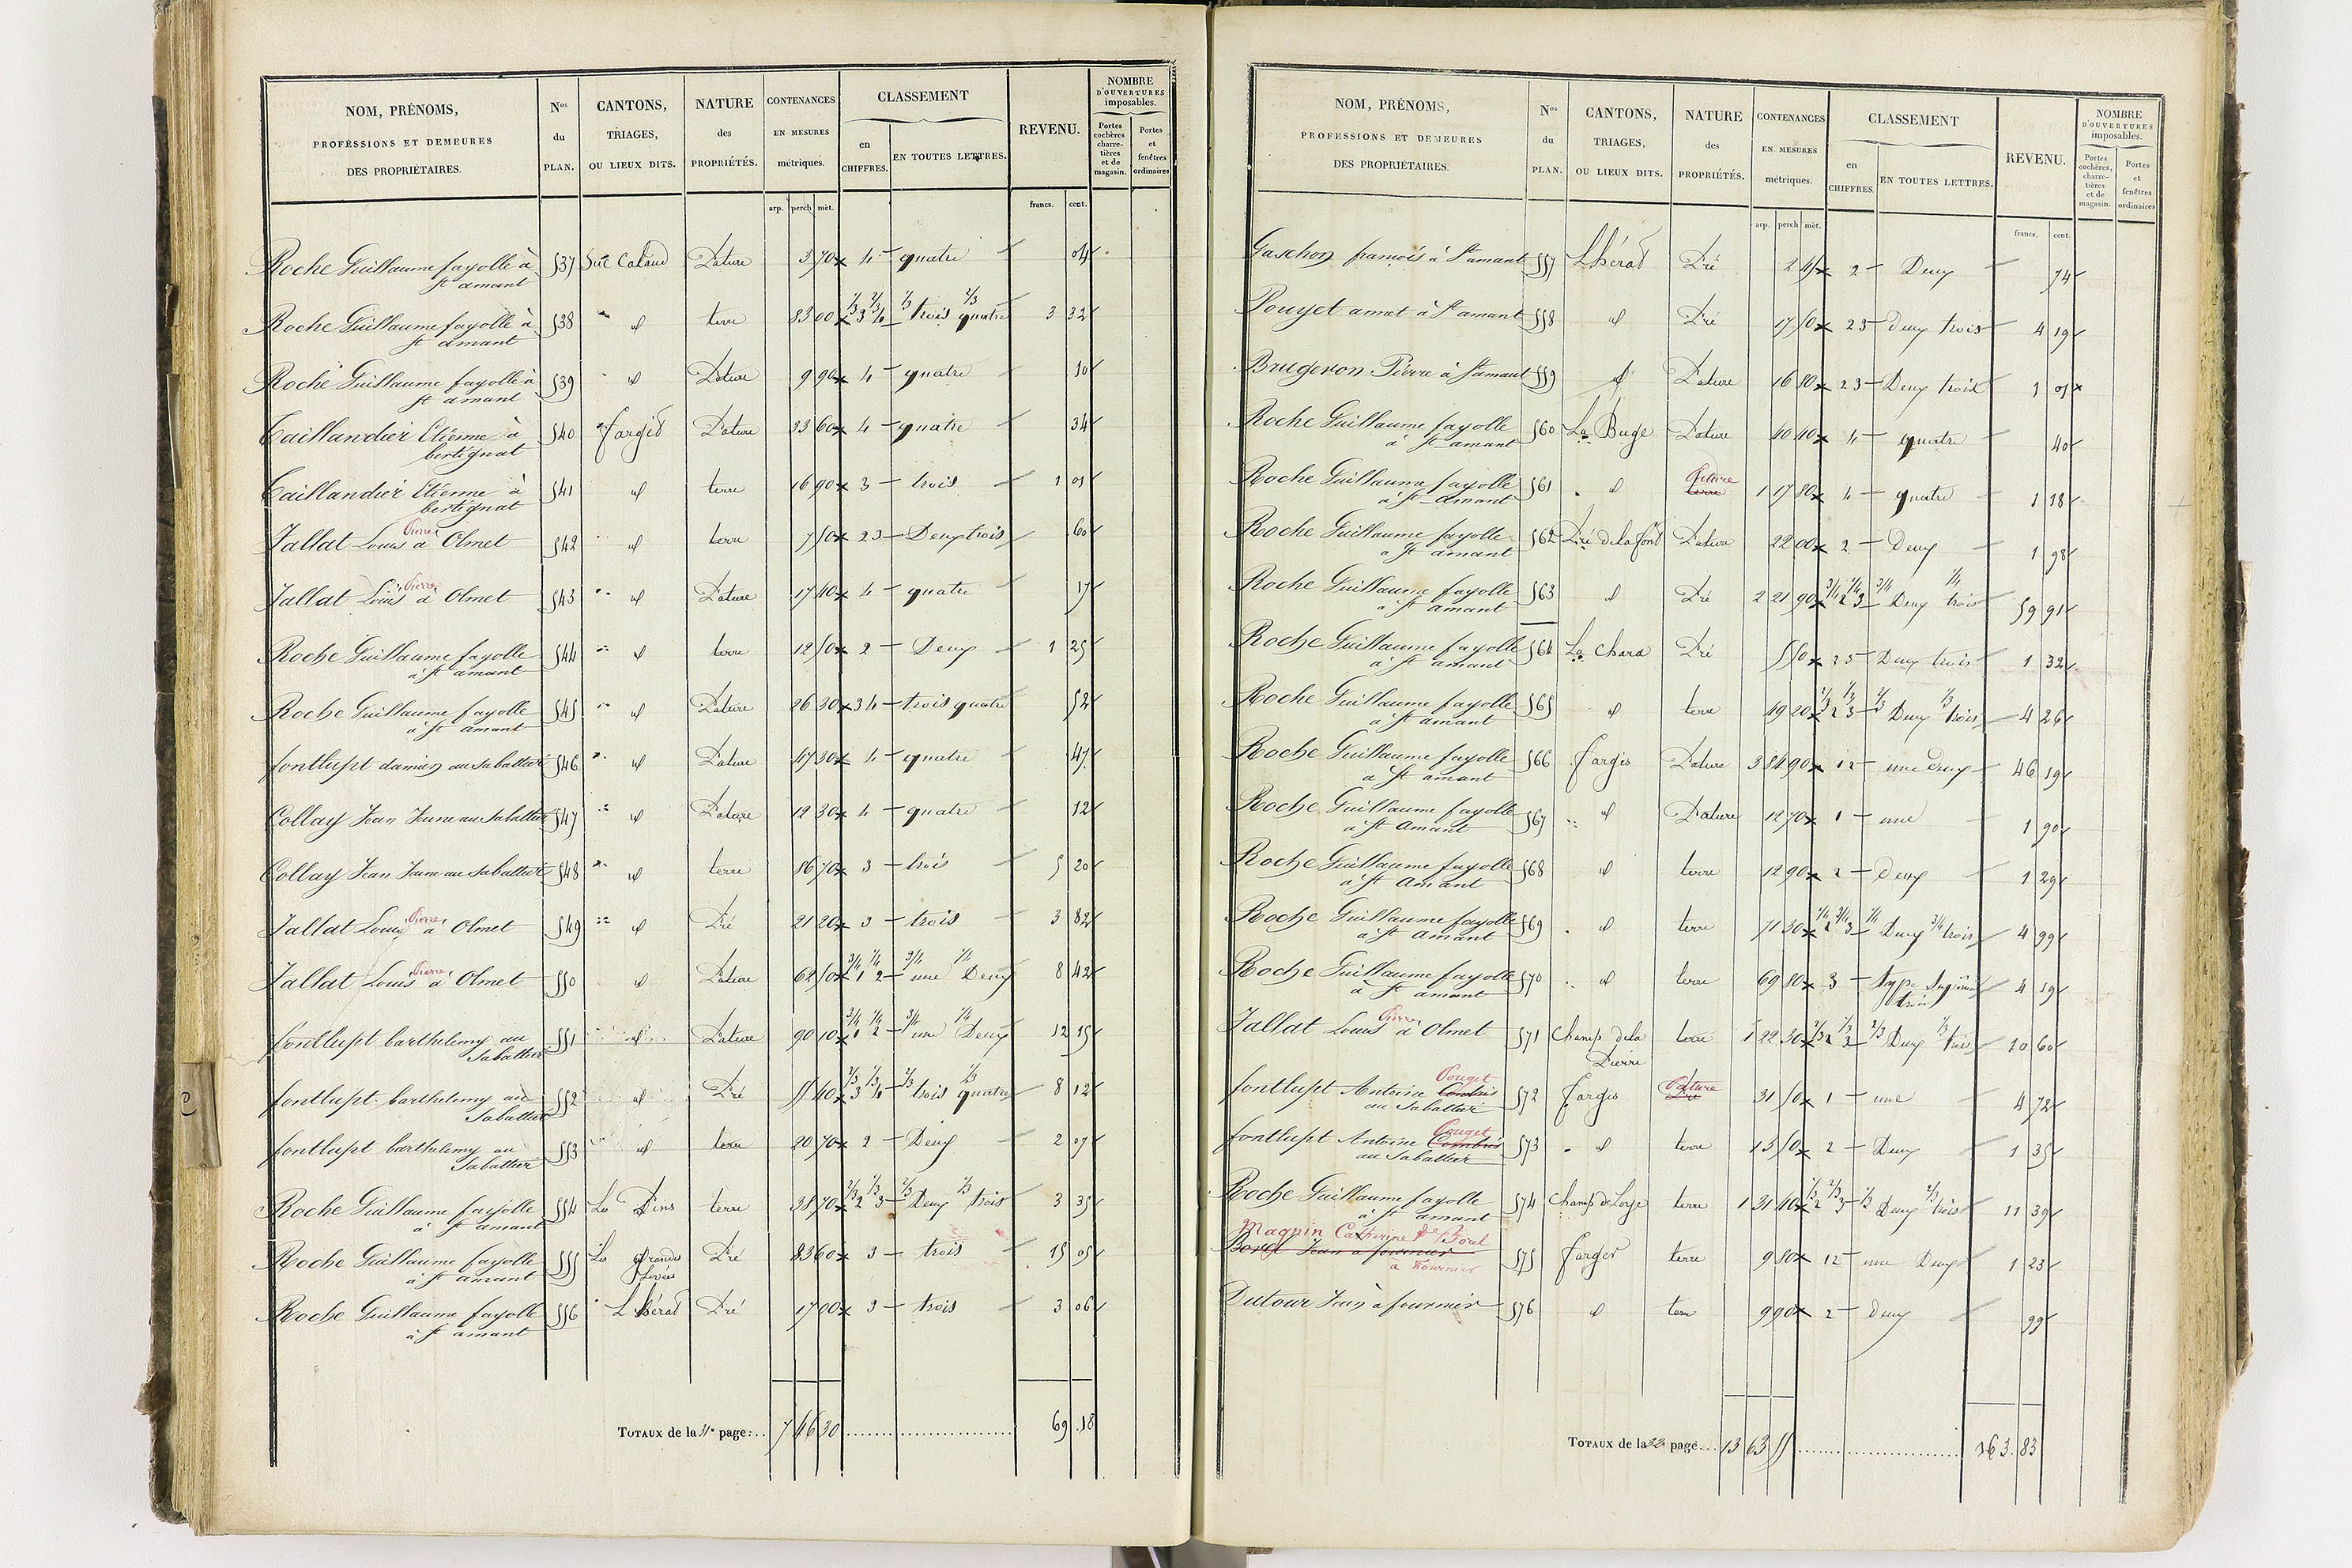 NOM, PRÉNOMS, PROFESSIONS ET DEMEURES DES PROPRIÉTAIRES. Nos du PLAN. CANTONS, TRIAGES, OU LIEUX DITS. NATURE des PROPRIÉTÉS. CONTENANCES EN MESURES métriques. CLASSEMENT en CHIFFRES. EN TOUTES LETTRES. REVENU. NOMBRE D'OUVERTURES imposables. Portes cochères charretières et de magasin. Portes et fenêtres ordinaires
arp. perch. mèt. francs. cent.
Roche Guillaume fayolle à 537 Suc Calaud Pature 3 70 4 quatre 04
St amant
Roche Guillaume fayolle à 538 id terre 83 00 1/3 3 2/3 4 1/3 trois 2/3 quatre 3 32
St amant
Roche Guillaume fayolle à 539 id Pature 9 90 4 quatre 10
St amant
Taillandier Etienne à 540 fargis Pature 33 60 4 quatre 34
bertignat
Taillandier Etienne à 541 id terre 16 90 3 trois 1 01
bertignat
Pierre
Jallat Louis à Olmet 542 id terre 7 50 23 Deux trois 60
Pierre
Jallat Louis à Olmet 543 id Pature 17 40 4 quatre 17
Roche Guillaume fayolle 544 id terre 12 50 2 Deux 1 25
à St amant
Roche Guillaume fayolle 545 id Pature 26 30 34 trois quatre 52
à St amant
fontlupt damien au Sabattier 546 id Pature 47 30 4 quatre 47
Collay Jean Jeune au Sabattier 547 id Pature 12 30 4 quatre 12
Collay Jean Jeune au Sabattier 548 id terre 86 70 3 trois 5 20
Pierre
Jallat Louis à Olmet 549 id Pré 21 20 3 trois 3 82
Pierre
Jallat Louis à Olmet 550 id Pature 62 50 3/4 1 1/4 2 3/4 une 1/4 Deux 8 42
fontlupt barthelemy au 551 id Pature 90 10 3/4 1 1/4 2 3/4 une 1/4 Deux 12 15
Sabattier
fontlupt barthelemy au 552 id Pré 55 40 2/3 3 1/3 4 2/3 trois 1/3 quatre 8 12
Sabattier
fontlupt barthelemy au 553 id terre 20 70 2 Deux 2 07
Sabattier
Roche Guillaume fayolle 554 Les Pins terre 38 70 2/3 2 1/3 3 2/3 Deux 1/3 trois 3 35
à St amant
Roche Guillaume fayolle 555 Les Grandes Pré 83 60 3 trois 15 05
à St amant
Roche Guillaume fayolle 556 Lhérat Pré 17 00 3 trois 3 06
à St amant
TOTAUX de la 31e page: 7 46 30 69 18
NOM, PRÉNOMS, PROFESSIONS ET DEMEURES DES PROPRIÉTAIRES. Nos du PLAN. CANTONS, TRIAGES, OU LIEUX DITS. NATURE des PROPRIÉTÉS. CONTENANCES EN MESURES métriques. CLASSEMENT en CHIFFRES. EN TOUTES LETTRES. REVENU. NOMBRE D'OUVERTURES imposables. Portes cochères, charretières et de magasin. Portes et fenêtres ordinaires
arp. perch. mèt. francs. cent.
Gaschon françois à St amant 557 Lhérat Pré 2 45 2 Deux 74
Pouyet amat à St amant 558 id Pré 17 50 23 Deux trois 4 19
Brugeron Pierre à St amant 559 id Pature 16 80 23 Deux trois 1 01
Roche Guillaume fayolle 560 La Buge Pature 40 40 4 quatre 40
à St amant
Pature
Roche Guillaume fayolle 561 id terre 1 17 80 4 quatre 1 18
à St amant
Roche Guillaume fayolle 562 Pré de la font Pature 22 00 2 Deux 1 98
à St amant
Roche Guillaume fayolle 563 id Pré 2 21 90 3/4 2 1/4 3 3/4 Deux 1/4 trois 59 91
à St amant
Roche Guillaume fayolle 564 La Chara Pré 5 50 23 Deux trois 1 32
à St amant
Roche Guillaume fayolle 565 id terre 49 20 2/3 2 1/3 3 2/3 Deux 1/3 trois 4 26
à St amant
Roche Guillaume fayolle 566 fargis Pature 3 84 90 12 une deux 46 19
à St amant
Roche Guillaume fayolle 567 id Pature 12 70 1 une 1 90
à St Amant
Roche Guillaume fayolle 568 id terre 12 90 2 Deux 1 29
à St Amant
Roche Guillaume fayolle 569 id terre 71 30 1/4 2 3/4 3 1/4 Deux 3/4 trois 4 99
à St Amant
Roche Guillaume fayolle 570 id terre 69 80 3 4 19
à St amant trois
Pierre
Jallat Louis à Olmet 571 Champ de la terre 1 22 30 2/3 2 1/3 3 2/3 Deux 1/3 trois 10 60
Pierre
Pouget Pature
fontlupt Antoine Combris 572 fargis Pré 31 50 1 une 4 72
au Sabattier
Pouget
fontlupt Antoine Combris 573 id terre 13 50 2 Deux 1 35
au Sabattier
Roche Guillaume fayolle 574 Champ de Loye terre 1 31 40 1/3 2 2/3 3 1/3 Deux 2/3 trois 11 39
à St amant
Magnin Catherine Ve Borel
Borel Jean à fournier 575 farges terre 9 80 12 une Deux 1 23
à Fournier
Dutour Jean à fournier 576 id terre 9 90 2 Deux 99
TOTAUX de la 32e page 13 63 55 163 83